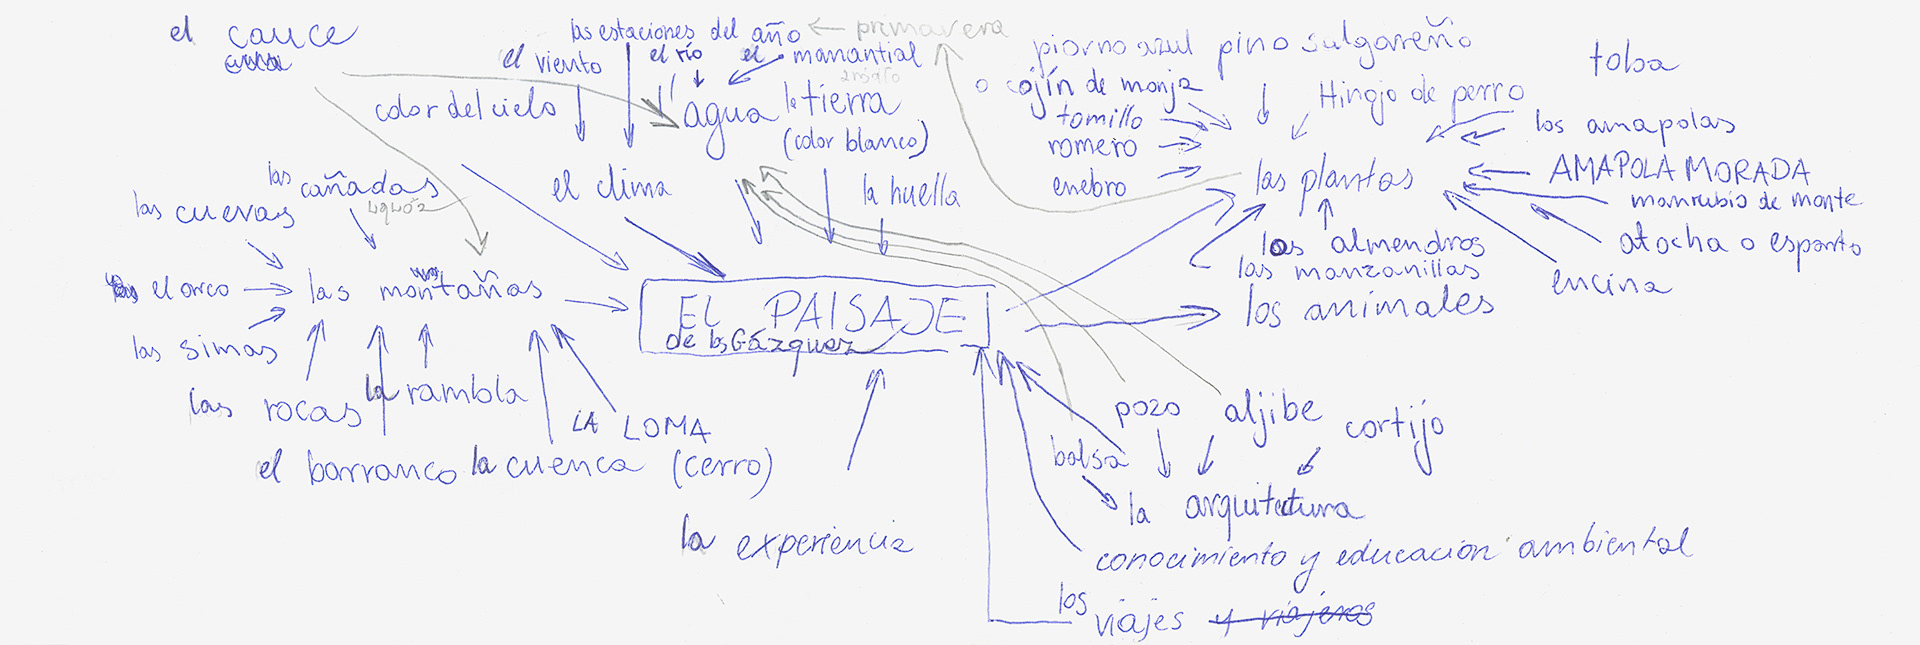 el cauce
las estaciones del año
primavera
el viento
el río
el manantial
color del cielo
agua
la tierra
(color blanco)
piorno azul
o cojín de monja
pino salgareño
toba
Hinojo de perro
tomillo
romero
enebro
las plantas
los amapolas
AMAPOLA MORADA
marrubio de monte
atocha o esparto
encina
los almendros
las manzanillas
los animales
las cañadas
las cuevas
el clima
la huella
el arco
las montañas
las simas
las rocas
la rambla
LA LOMA
el barranco
la cuenca
(cerro)
EL PAISAJE
de los Gázquez
la experiencia
pozo
aljibe
cortijo
balsa
la arquitectura
conocimiento y educación ambiental
los viajes y viajeros